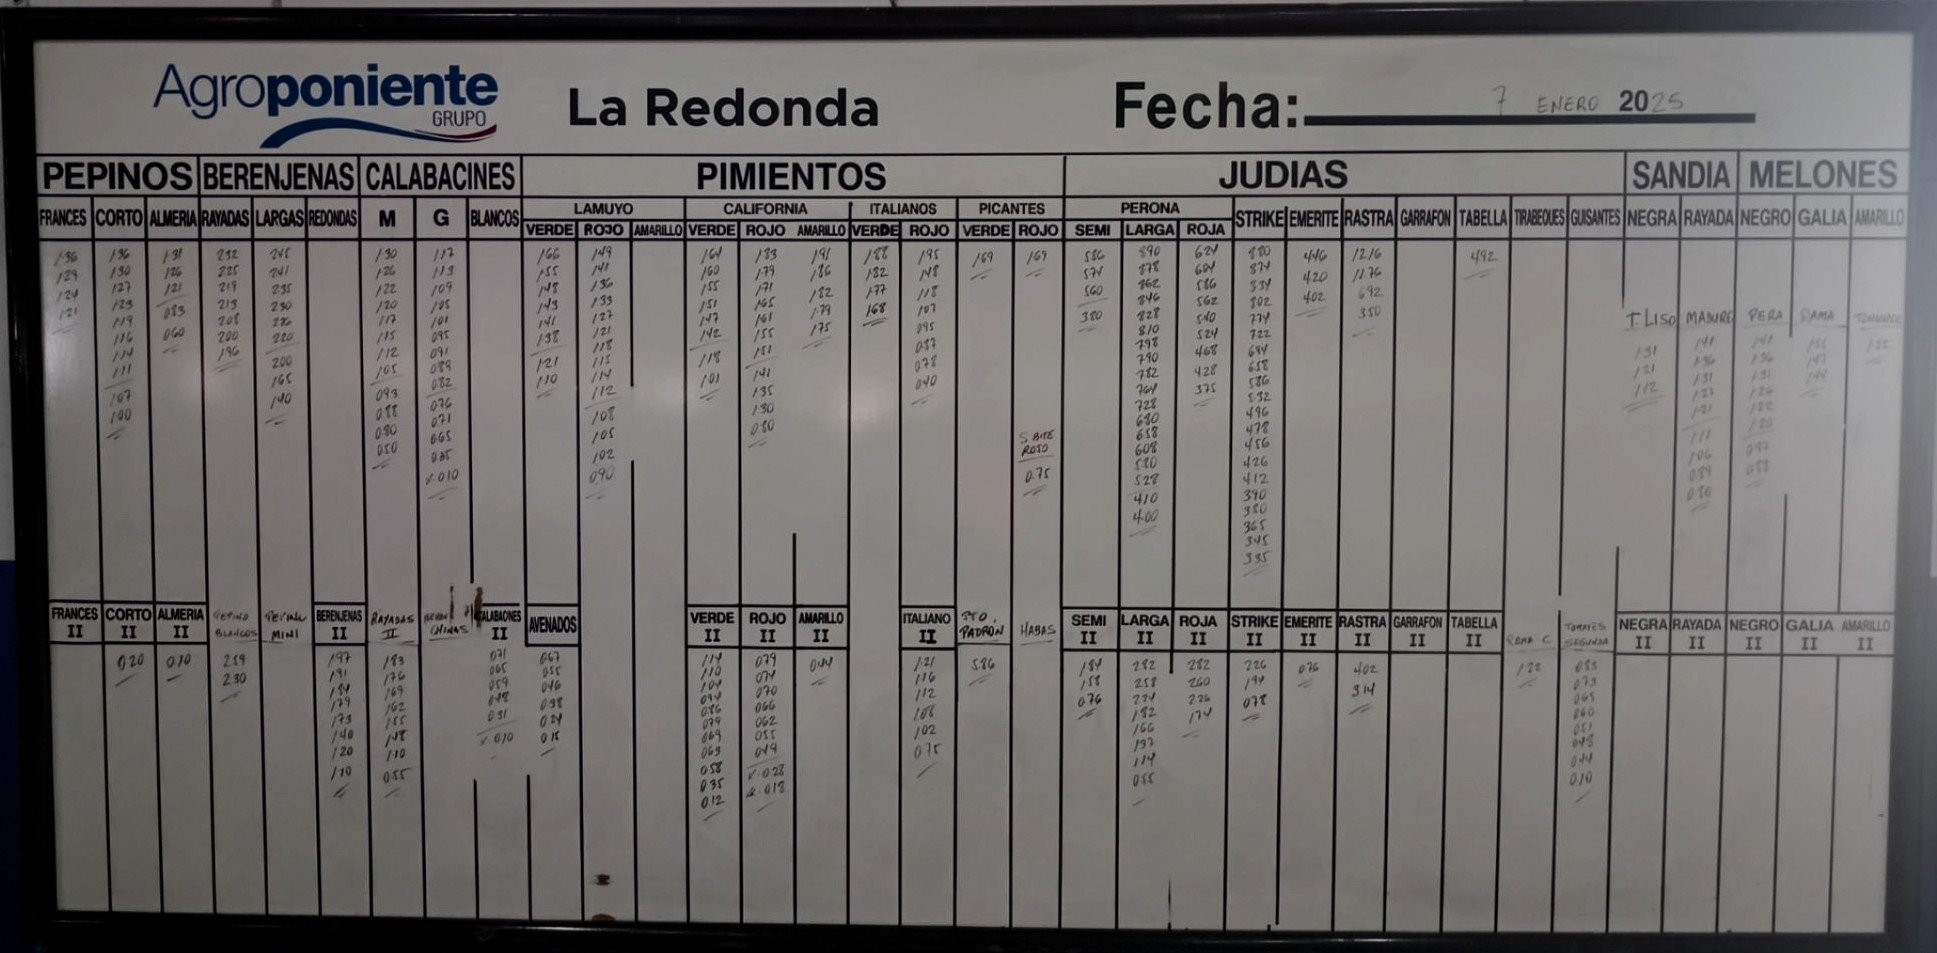 Agroponiente
GRUPO
La Redonda
Fecha: 7 ENERO 2025
PEPINOS BERENJENAS CALABACINES PIMIENTOS JUDIAS SANDIA MELONES
LAMUYO CALIFORNIA ITALIANOS PICANTES PERONA
FRANCES CORTO ALMERIA RAYADAS LARGAS REDONDAS M G BLANCOS VERDE ROJO AMARILLO VERDE ROJO AMARILLO VERDE ROJO VERDE ROJO SEMI LARGA ROJA STRIKE EMERITE RASTRA GARRAFON TABELLA TIRABEQUES GUISANTES NEGRA RAYADA NEGRO GALIA AMARILLO
136 136 131 232 245 130 117 166 149 164 183 191 188 195 169 169 586 890 624 880 446 1216 492
129 130 126 225 241 126 113 155 141 160 179 186 182 148 574 878 604 874 420 1176
124 127 121 219 235 122 109 148 136 155 171 182 177 118 560 862 586 834 402 692
121 123 083 213 230 120 105 143 133 151 165 179 168 107 380 846 562 802 350
119 060 208 226 117 101 141 127 147 161 175 095 828 540 774
116 200 220 115 095 138 121 142 155 087 810 524 722
114 196 200 112 091 121 118 118 151 078 798 468 694
111 165 105 089 110 115 101 141 040 790 428 658
107 140 093 082 114 135 782 375 586
100 088 076 112 130 764 532
080 071 108 080 728 496
050 065 105 680 478
035 102 658 456
x.010 090 608 426
580 412
528 390
410 380
4.00 365
345
335
ROJO
0.75
T LISO MADURO PERA RAMA
131 141 141 151
121 136 136 147
112 131 131 144
127 126
121 122
111 120
106 097
089 088
080
FRANCES II CORTO II ALMERIA II PEPINO BLANCOS PEPINO MINI BERENJENAS II RAYADAS II CHINAS CALABACINES II AVENADOS VERDE II ROJO II AMARILLO II ITALIANO II PTO. PADRON HABAS SEMI II LARGA II ROJA II STRIKE II EMERITE II RASTRA II GARRAFON II TABELLA II RAMA C TOMATES SEGUNDA NEGRA II RAYADA II NEGRO II GALIA II AMARILLO II
020 010 259 197 183 071 067 114 079 044 121 586 184 282 282 226 076 402 122 083
230 191 176 065 055 110 074 116 158 258 260 194 314 073
184 169 059 046 104 070 112 076 224 226 078 065
179 162 048 038 094 066 108 182 174 060
173 155 031 024 086 062 102 166 051
140 148 x.010 015 079 055 075 137 048
120 110 069 049 114 044
110 055 063 x.028 055 010
058 x.018
035
012